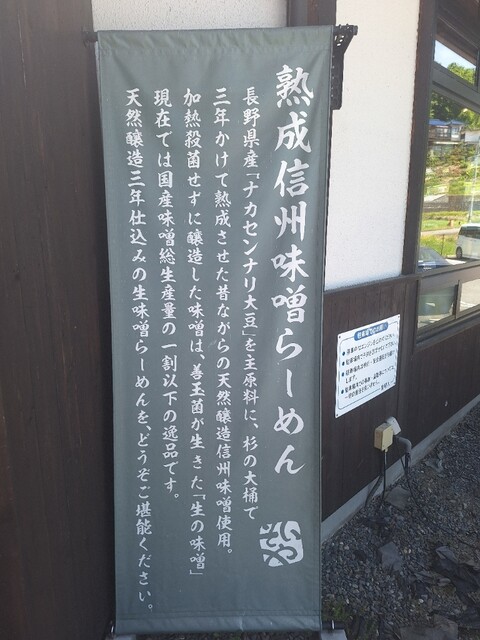 熟成信州味噌らーめん
長野県産「ナカセンナリ大豆」を主原料に、杉の大桶で
三年かけて熟成させた昔ながらの天然醸造信州味噌使用。
加熱殺菌せずに醸造した味噌は、善玉菌が生きた「生の味噌」
現在では国産味噌総生産量の一割以下の逸品です。
天然醸造三年仕込みの生味噌らーめんを、どうぞご堪能ください。